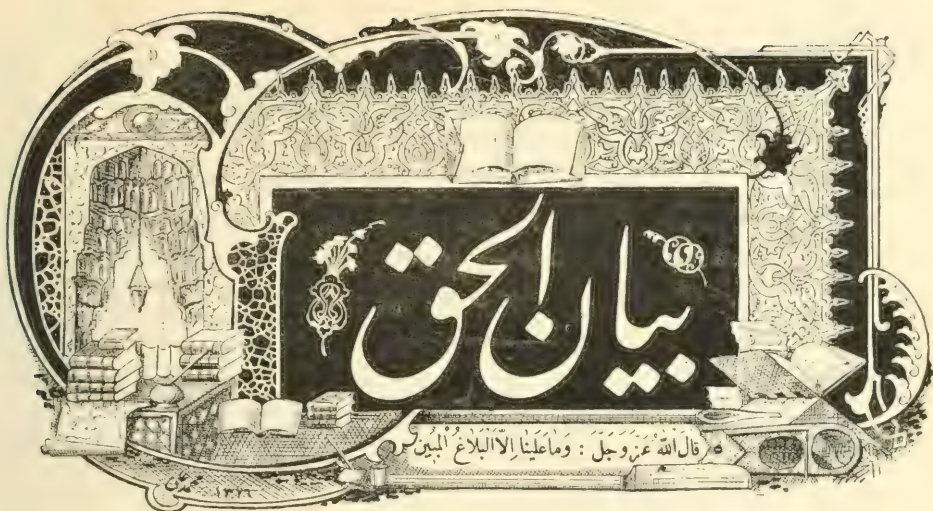 بيان الحق
قَالَ اللهُ عَزَّ وَجَلَّ : وَمَا عَلَيْنَا إِلَّا الْبَلَاغُ الْمُبِينُ
١٣٢٦